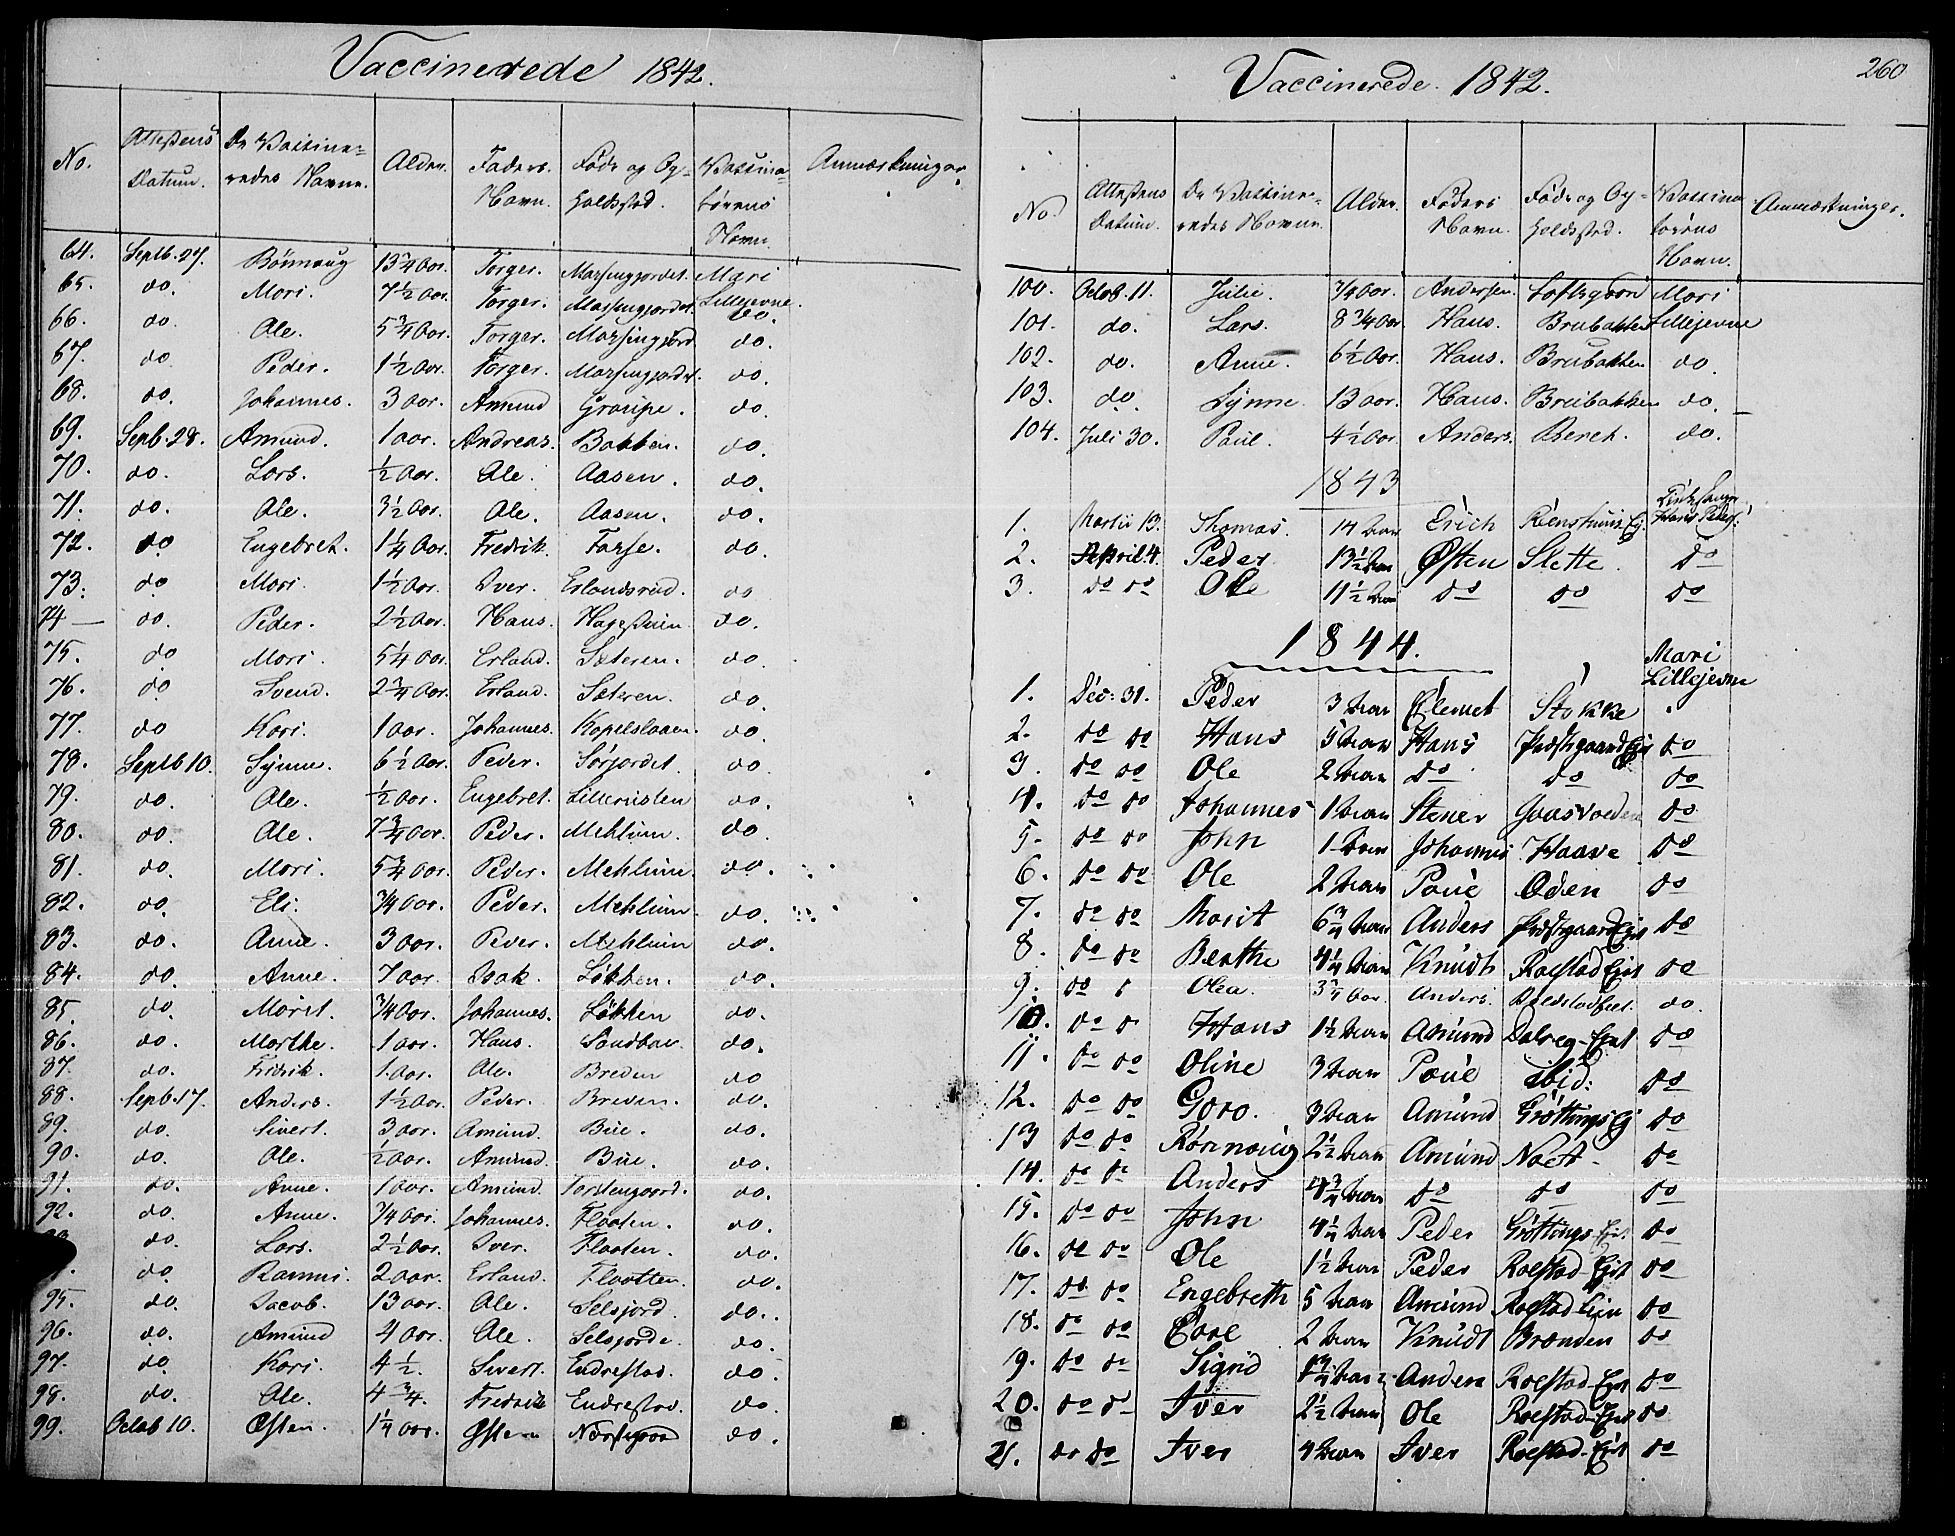 Vaccinerede 1842.
No. Attestens Datum. De Vaccine= redes Navne. Alder. Faders Navn. Føde og Op= holdssted. Vaccina= törens Navn. Anmærkninger.
64. Septb. 27. Rönnaug 13 3/4 Aar. Torger. Mari
65. do. Mari. 7 1/2 Aar. Torger. Lillejevne
66. do. Ole. 5 3/4 Aar. Torger. do.
67. do Peder. 1 1/2 Aar. Torger. do.
68. do. Johannes. 3 Aar. Amund Graupe. do.
69. Sepb. 28. Amund. 1 Aar. Andreas. Bakken. do.
70. do. Lars. 1/2 Aar. Ole. Aasen. do.
71. do. Ole. 3 1/2 Aar. Ole. Aasen. do.
72. do Engebret. 1 1/4 Aar. Fredrik. Forse. do.
73. do Mari. 1 1/2 Aar. Iver. Erlandsrud. do
74 — do. Peder. 2 1/2 Aar. Hans. do.
75. do Mari. 5 1/4 Aar. Erland. Sæteren. do.
76. do Svend. 2 3/4 Aar. Erland. Sæteren. do.
77. do Kari. 1 Aar. Johannes. do.
78. Septb 10. Synne. 6 1/2 Aar. Peder. Sørjordet. do.
79. do. Ole. 1/2 Aar. Engebret. do.
80. do. Ole. 7 3/4 Aar. Peder. Mehlum. do.
81. do. Mari. 5 3/4 Aar. Peder. Mehlum. do.
82. do. Eli. 3/4 Aar. Peder. Mehlum. do.
83. do. Anne. 3 Aar. Peder. Mehlum do.
84. do. Anne. 7 Aar. Isak. Løkken. do.
85. do. Marit. 3/4 Aar. Johannes. Løkken do.
86. do. Marthe. 1 Aar. Hans. do.
87. do. Fredrik. 1 Aar. Ole. Breden do
88. Sepb. 17. Anders. 1 1/2 Aar. Peder. Breden. do.
89. do. Sivert. 3 Aar. Amund. Bue. do.
90. do. Ole. 1/2 Aar. Amund. Bue. do.
91. do. Anne. 1 Aar. Amund. do.
92. do. Anne. 3/4 Aar. Johannes. Flaaten. do.
do. Lars. 2 1/2 Aar. Iver. Flaaten. do.
do. Rannei. 2 Aar. Erland. Flaatten. do.
95. do. Jacob. 13 Aar. Ole. Selsjord. do.
96. do. Amund 4 Aar. Ole. Selsjorde. do.
97. do. Kari. 4 1/2. Sivert. Endrestad. do.
98. do. Ole. 4 3/4. Fredrik Endrestad. do.
99. Octob 10. Østen. 1 1/4 Aar. Østen do.
Vaccinerede. 1842. 260
No. Attestens Datum. De Vaccine= redes Navne. Alder. Faders Navn. Føde og Op= holdssted. Vaccina törens Navn. Anmærkninger.
100. Octob. 11. Julie. 3/4 Aar. Andersen. Loftsgaard Mari
101. do. Lars. 8 3/4 Aar Hans. Brubakken Lillejevne
102. do. Anne. 6 1/2 Aar. Hans. Brubakken do.
103. do. Synne. 13 Aar. Hans. Brubakken do.
104. Juli 30. Paul. 4 1/2 Aar. Anders. do.
1843
1. Martii 13. Thomas. 14 Aar Erich Hans Peders.
2. April. 4. Peder. 13 1/2 Aar Østen Slette. do
3. do do Ole 11 1/2 Aar do do do
1844.
Mari Lillejevne
1. Dec: 31. Peder 3 Aar Clemet Stokke
2. do do Hans 5 Aar Hans Præstgaard Eje do
3. do do Ole 2 Aar do do do
4. do do Johannes 1 Aar Stener do
5. do do John 1 Aar Johannes Haave do
6. do do Ole 2 Aar Poul Oden do
7. do do Marit 6 3/4 Aar Anders Præstgaard Ejet do
8. do do Berthe 4 1/4 Aar Knudt Rolstad Ejet do
9. do Olea. 3 3/4 Aar. Anders. do.
10. do d Hans 1 1/2 Aar Amund Dalseg-Ejet do
11. do do Oline 3 Aar Poul ibid: do
12. do do Goro. 3 Aar Amund Grøttings Ej do
13 do do Rønnaug 2 1/2 Aar Amund do
14. do do Anders 4 3/4 Aar do do do
15. do do John 4 1/2 Aar Peder Grøttings-Eje. do
16. do do Ole 1 1/2 Aar Peder Rolstad-Ejet do
17. do do Engebreth 5 Aar Amund Rolstad Ejet do
18. do do Poul 2 Aar Knudt Brænden do
19. do do Sigrid Anders Rolstad-Ejet do
20. do d Iver 2 1/2 Aar Ole Rolstad-Ejet do
21. do do Iver 4 Aar Iver Rolstad-Ejet do